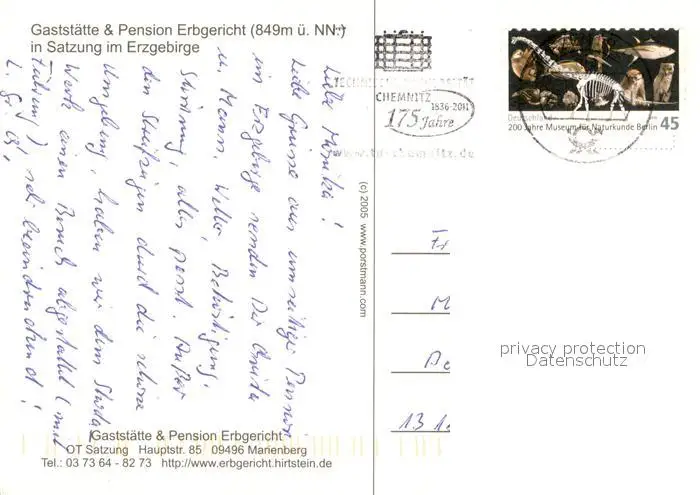 Gaststätte & Pension Erbgericht (849m ü. NN.)
in Satzung im Erzgebirge
Liebe Monika!
Liebe Grüsse aus umseitiger Pension
im Erzgebirge senden Dir
u. Mann. Wetter, Betätigung,
Stimmung, alles passt. Außer
den durch die schöne
Umgebung, haben wir dem
Werk einen Besuch abgestattet (mit
Führung), sehr beeindruckend!
L. G.
Gaststätte & Pension Erbgericht
OT Satzung Hauptstr. 85 09496 Marienberg
Tel.: 03 73 64 - 82 73 http://www.erbgericht.hirtstein.de
(c) 2005 www.porstmann.com
TECHNISCHE UNIVERSITÄT
CHEMNITZ
1836-2011
175 Jahre
www.tu-chemnitz.de
Deutschland
200 Jahre Museum für Naturkunde Berlin
45
Fr
M
13 1
privacy protection
Datenschutz